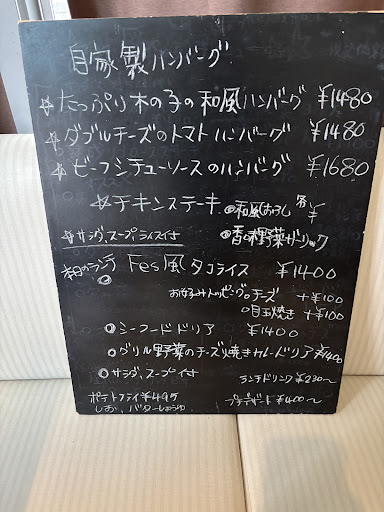 自家製ハンバーグ
☆たっぷり木の子の和風ハンバーグ ¥1480
☆ダブルチーズのトマトハンバーグ ¥1480
☆ビーフシチューソースのハンバーグ ¥1680
☆チキンステーキ ◎和風おろし 各¥
☆サラダ、スープ、ライス付 ◎香味野菜ガーリック
本日のランチ Fes風タコライス ¥1400
お好みトッピング◎チーズ +¥100
◎目玉焼き +¥100
◎シーフードドリア ¥1400
◎グリル野菜のチーズ焼きカレードリア ¥1400
◎サラダ、スープ付 ランチドリンク ¥230〜
ポテトフライ ¥495 プチデザート ¥400〜
しお、バターしょうゆ